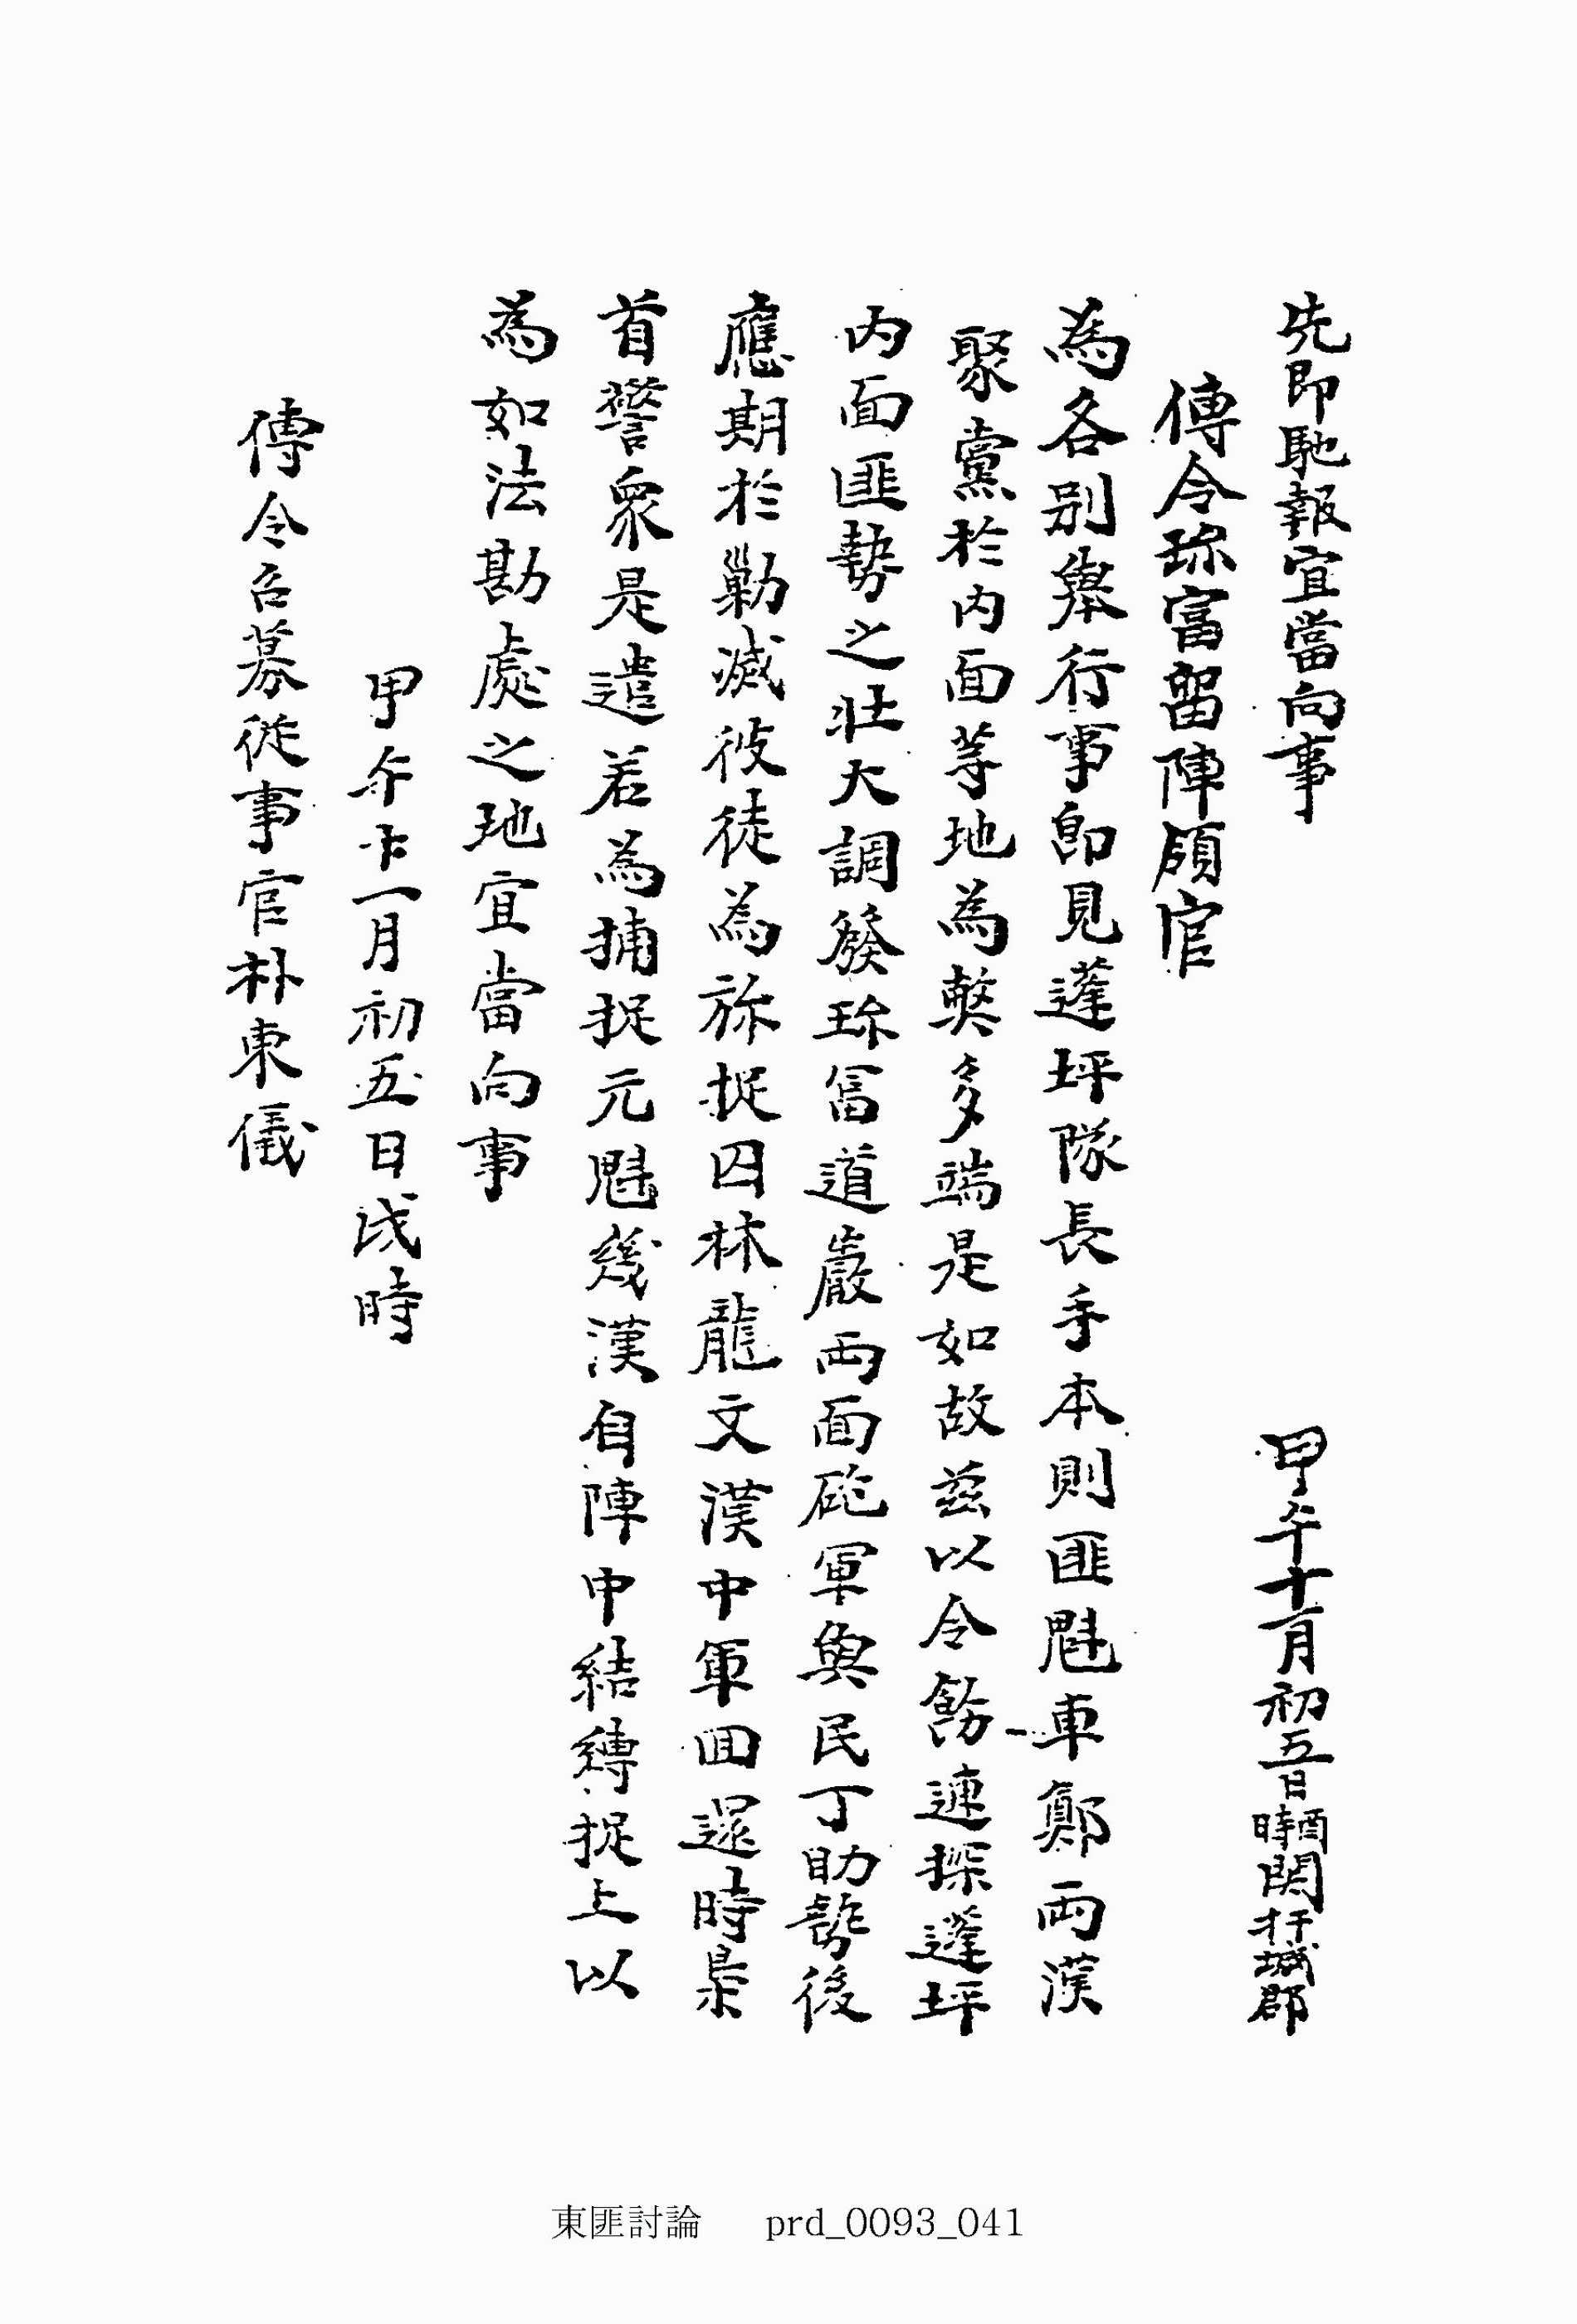 先即馳報宜當向事 甲午十一月初五日酉時關杆城郡
傳令珎富留陣領官
為各別擧行事卽見蓬坪隊長手本則匪魁車鄭兩漢
聚黨於內面等地為獘多端是如故玆以令飭連探蓬坪
內面匪勢之壯大調發珎富道巖両面砲軍與民丁助勢後
應期於勦滅彼徒為旀捉囚林龍文漢中軍回還時梟
首警衆是遣若為捕捉元魁幾漢自陣中結縛捉上以
為如法勘處之地宜當向事
甲午十一月初五日戌時
傳令召募從事官朴東儀
東匪討論 prd_0093_041